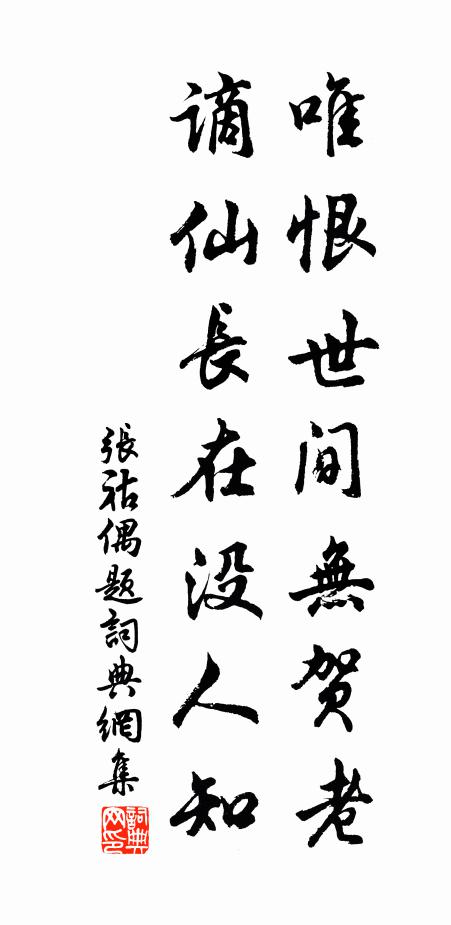 唯恨世间無贺老
謫仙長在没人知
張祜偶题詞典網集
詞典
网印